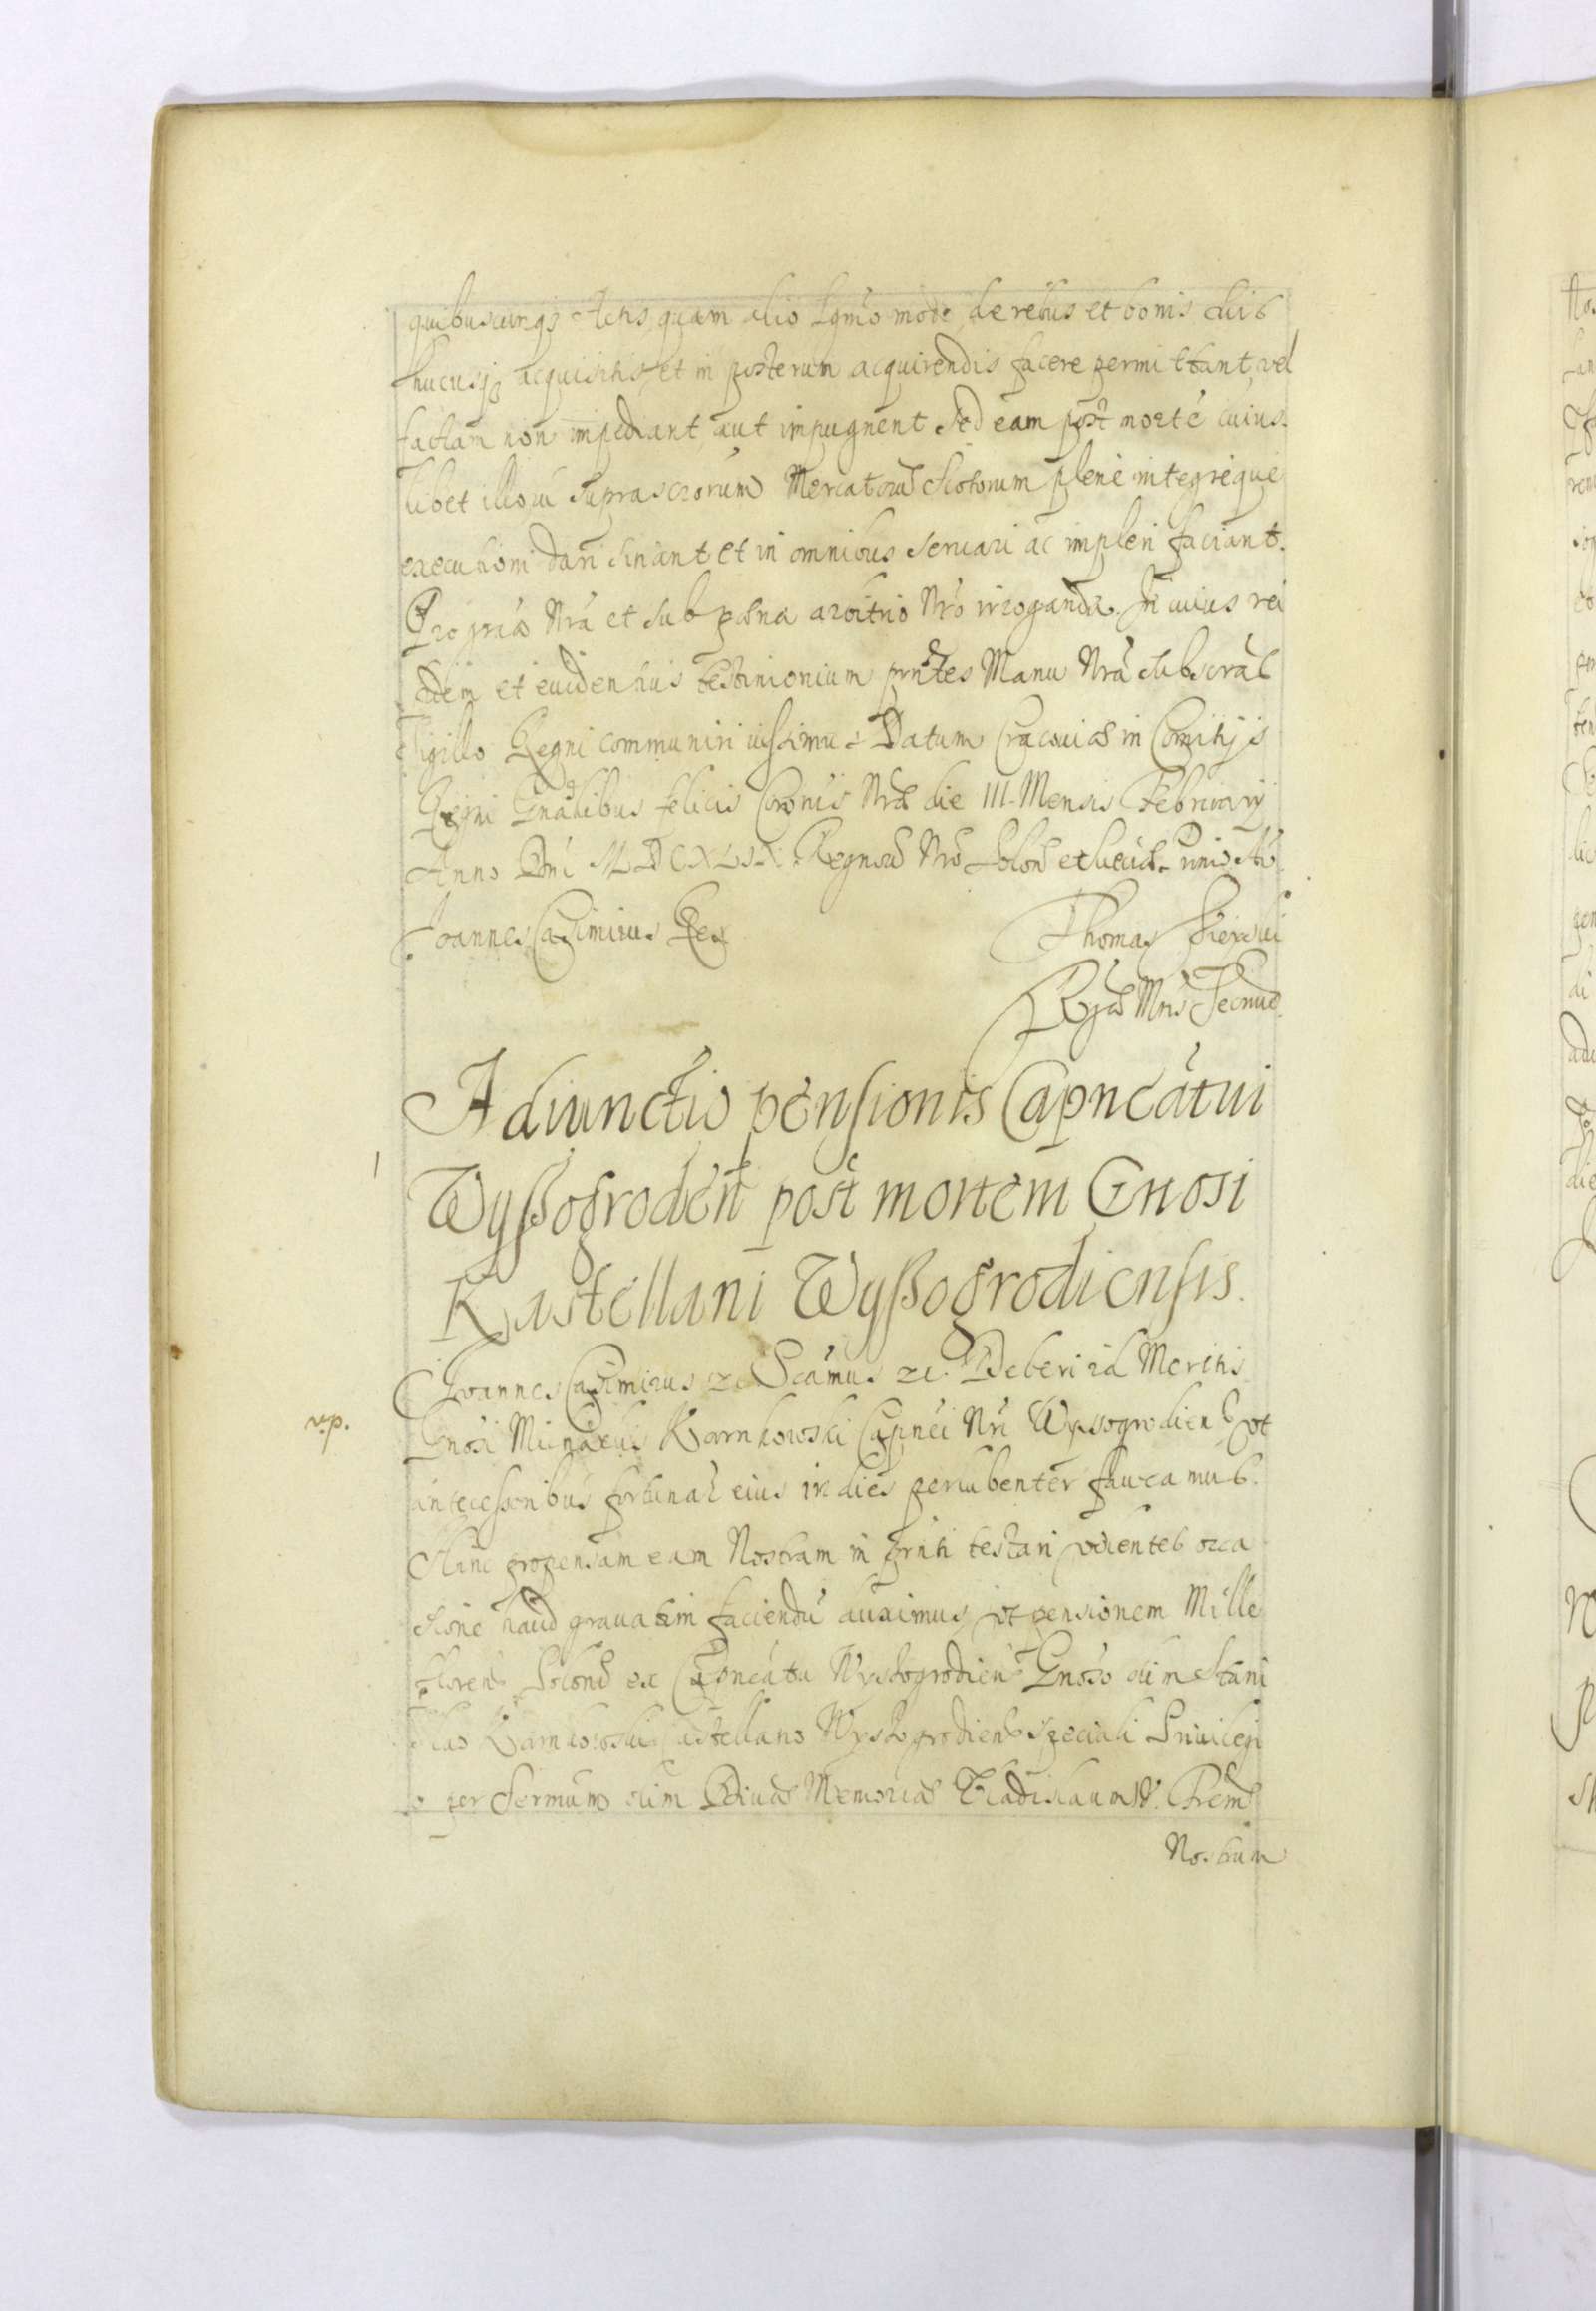 quibuscunqꝫ Actis quam alio Lgmo modo de rebus et bonis suis
hucusqꝫ acquisitis et in posterum acquirendis facere permittant, vel
factam non impediant, aut impugnent Sed eam post morte cuius-
libet illoru suprascrorum Mercatorū Scotorum plene integreque
executioni dari sinant et in omnibus seruari ac impleri faciant.
Pro gria Nra et sub poena arbitrio Nro irroganda. In cuius rei
fidem et euidentius testimonium prntes Manu Nra subscras
Sigillo Regni communiri iussimus Datum Cracouiæ in Comitijs
Regni Gnalibus felicis Coronis Nræ die III. Mensis Februarij
Anno Dni MDCXLIX. Regnorū Nrō Polon et Sueciæ primo Ao
Joannes Casimirus Rex Thomas
Rgiæ Mtis Secrius
Adiunctio pensionis Capneatui
Wyßogrodeñ post mortem Gnosi
Kastellani Wyßogrodiensis.
Joannes Casimirus zc Scamus zc. Deberi id Meritis
v.p.
Gnosi Karnkowski Capnei Nri Wyssogrodiens vt
fortunas eius in dies perlubenter faueamus.
Hanc propensam eam Nostram in prnti testari volentes occa
sione haud grauatim faciendu duximus, vt pensionem Mille
floren Polond ex Capneatu Wyssogrodiens Gnoso olim Stani
slao Karnkowski Castellano Wyssogrodiens speciali Priuilegi
o per Sermum olim Diuæ Memoriæ Vladislaum IV. Frem
Nostrum